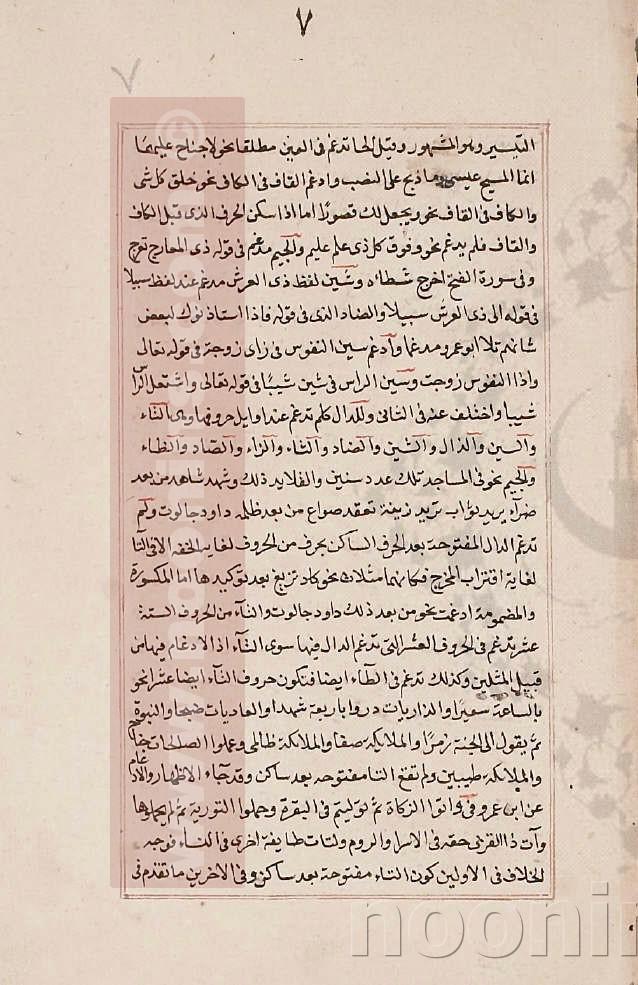 ٧
٧
التيسير وهو المشهور وقيل الحا تدغم فى العين مطلقا نحو لاجناح عليهما
انما المسيح عيسى وما ذبح على النصب وادغم القاف فى الكاف نحو خلق كل شى
والكاف فى القاف نحو ويجعل لك قصورًا اما اذا سكن الحرف الذى قبل الكاف
والقاف فلم يدغم نحو وفوق كل ذى علم عليم والجيم مدغم فى قوله ذى المعارج تعرج
وفى سورة الفتح اخرج شطاه وشين لفظ ذى العرش مدغم عند لفظ سبيلا
فى قوله الى ذى العرش سبيلا والضاد الذى فى قوله فاذا استاذنوك لبعض
شانهم تلا ابو عمرو مدغما وادغم سين النفوس فى زاى زوجت فى قوله تعالى
واذا النفوس زوجت وسين الراس فى شين شيبا فى قوله تعالى واشتعل الراس
شيبا واختلف عنه فى الثانى وللدال كلم تدغم عند اوايل حروفها وهى التاء
والسين والذال والشين والضاد والثاء والزاء والصاد والظاء
والجيم نحو فى المساجد تلك عدد سنين والقلايد ذلك وشهد شاهد من بعد
ضرآء يريد ثواب تريد زينة نفقد صواع من بعد ظلمه داود جالوت ولم
تدغم الدال المفتوحة بعد الحرف الساكن بحرف من الحروف لغاية الخفه الا فى التا
لغاية اقتراب المخرج فكانهما مثلان نحو كاد تزيغ بعد توكيدها اما المكسورة
والمضمومة ادغمت نحو من بعد ذلك داود جالوت والتآء من الحروف الستة
عشر تدغم فى الحروف العشر التى تدغم الدال فيها سوى التآء اذ الادغام فيها من
قبيل المثلين وكذلك تدغم فى الطآء ايضا فتكون حروف التآء ايضا عشرا نحو
بالساعة سعيرًا والذاريات ذروا باربعة شهدا والعاديات ضبحا والنبوة
ثم يقول الى الجنة زمرًا والملايكة صفا والملائكة ظالمى وعملوا الصالحات جناح
والملائكة طيبين ولم تقع التا مفتوحه بعد ساكن وقد جآء الاظهار والادغام
عن ابى عمرو فى واتوا الزكاة ثم توليتم فى البقرة وحملوا التورية ثم لم يحملوها
وآت ذا القربى حقه فى الاسرا والروم ولتات طايفة اخرى فى النسآء فوجه
الخلاف فى الاولين كون التاء مفتوحة بعد ساكن وفى الاخرين ما تقدم فى
noonir